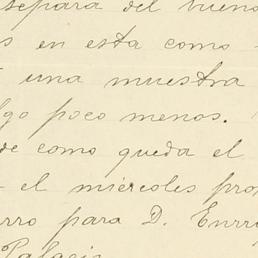 separa del bueno
s en esta como
una muestra
lgo poco menos.
de como queda el
el miércoles pro
rro para D. Enrr
Palacio